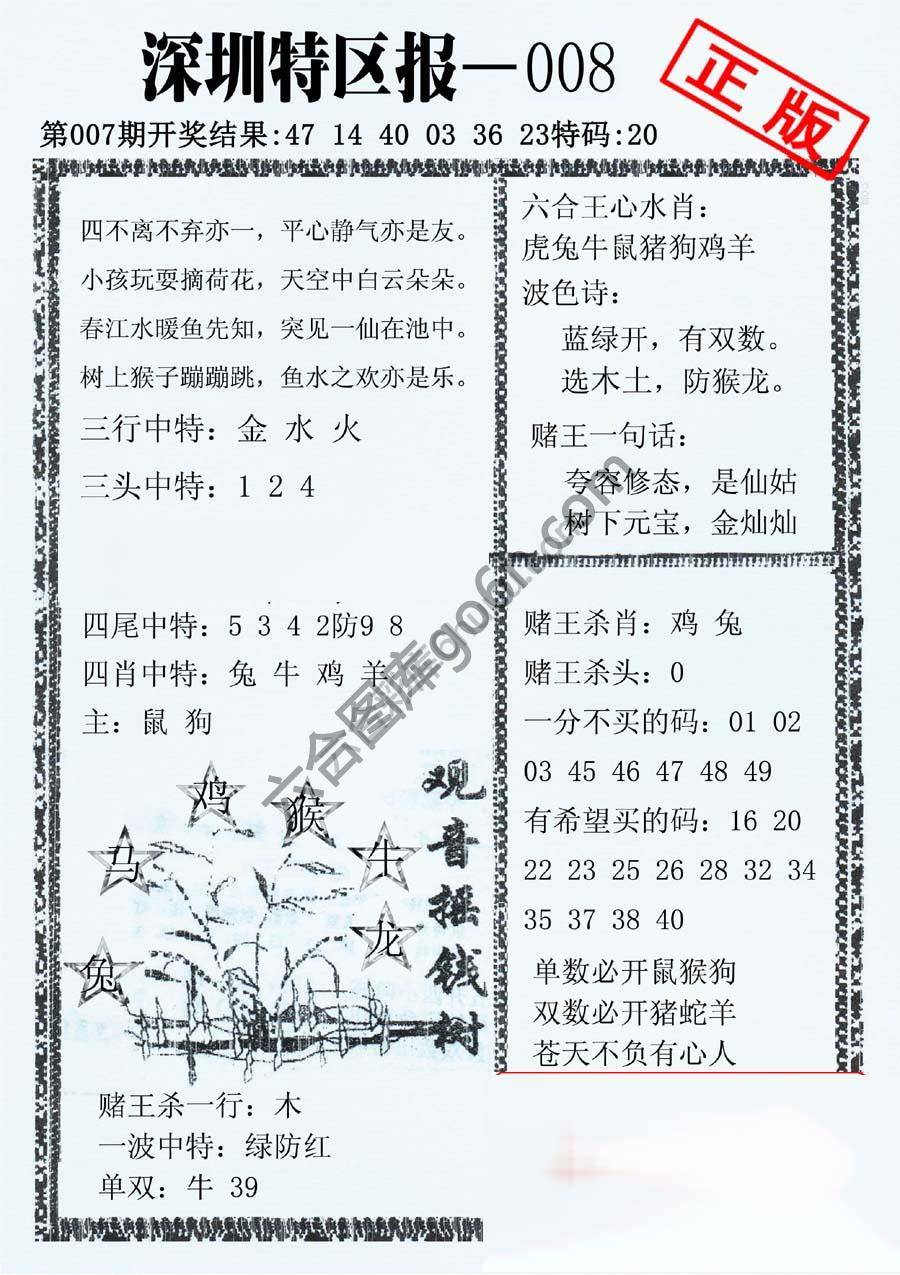 深圳特区报—008
正版
第007期开奖结果:47 14 40 03 36 23特码:20
四不离不弃亦一，平心静气亦是友。
小孩玩耍摘荷花，天空中白云朵朵。
春江水暖鱼先知，突见一仙在池中。
树上猴子蹦蹦跳，鱼水之欢亦是乐。
三行中特：金 水 火
三头中特：1 2 4
四尾中特：5 3 4 2防9 8
四肖中特：兔 牛 鸡 羊
主：鼠 狗
鸡
猴
马
牛
龙
兔
观音摇钱树
赌王杀一行：木
一波中特：绿防红
单双：牛 39
六合王心水肖：
虎兔牛鼠猪狗鸡羊
波色诗：
蓝绿开，有双数。
选木土，防猴龙。
赌王一句话：
夸容修态，是仙姑
树下元宝，金灿灿
赌王杀肖：鸡 兔
赌王杀头：0
一分不买的码：01 02
03 45 46 47 48 49
有希望买的码：16 20
22 23 25 26 28 32 34
35 37 38 40
单数必开鼠猴狗
双数必开猪蛇羊
苍天不负有心人